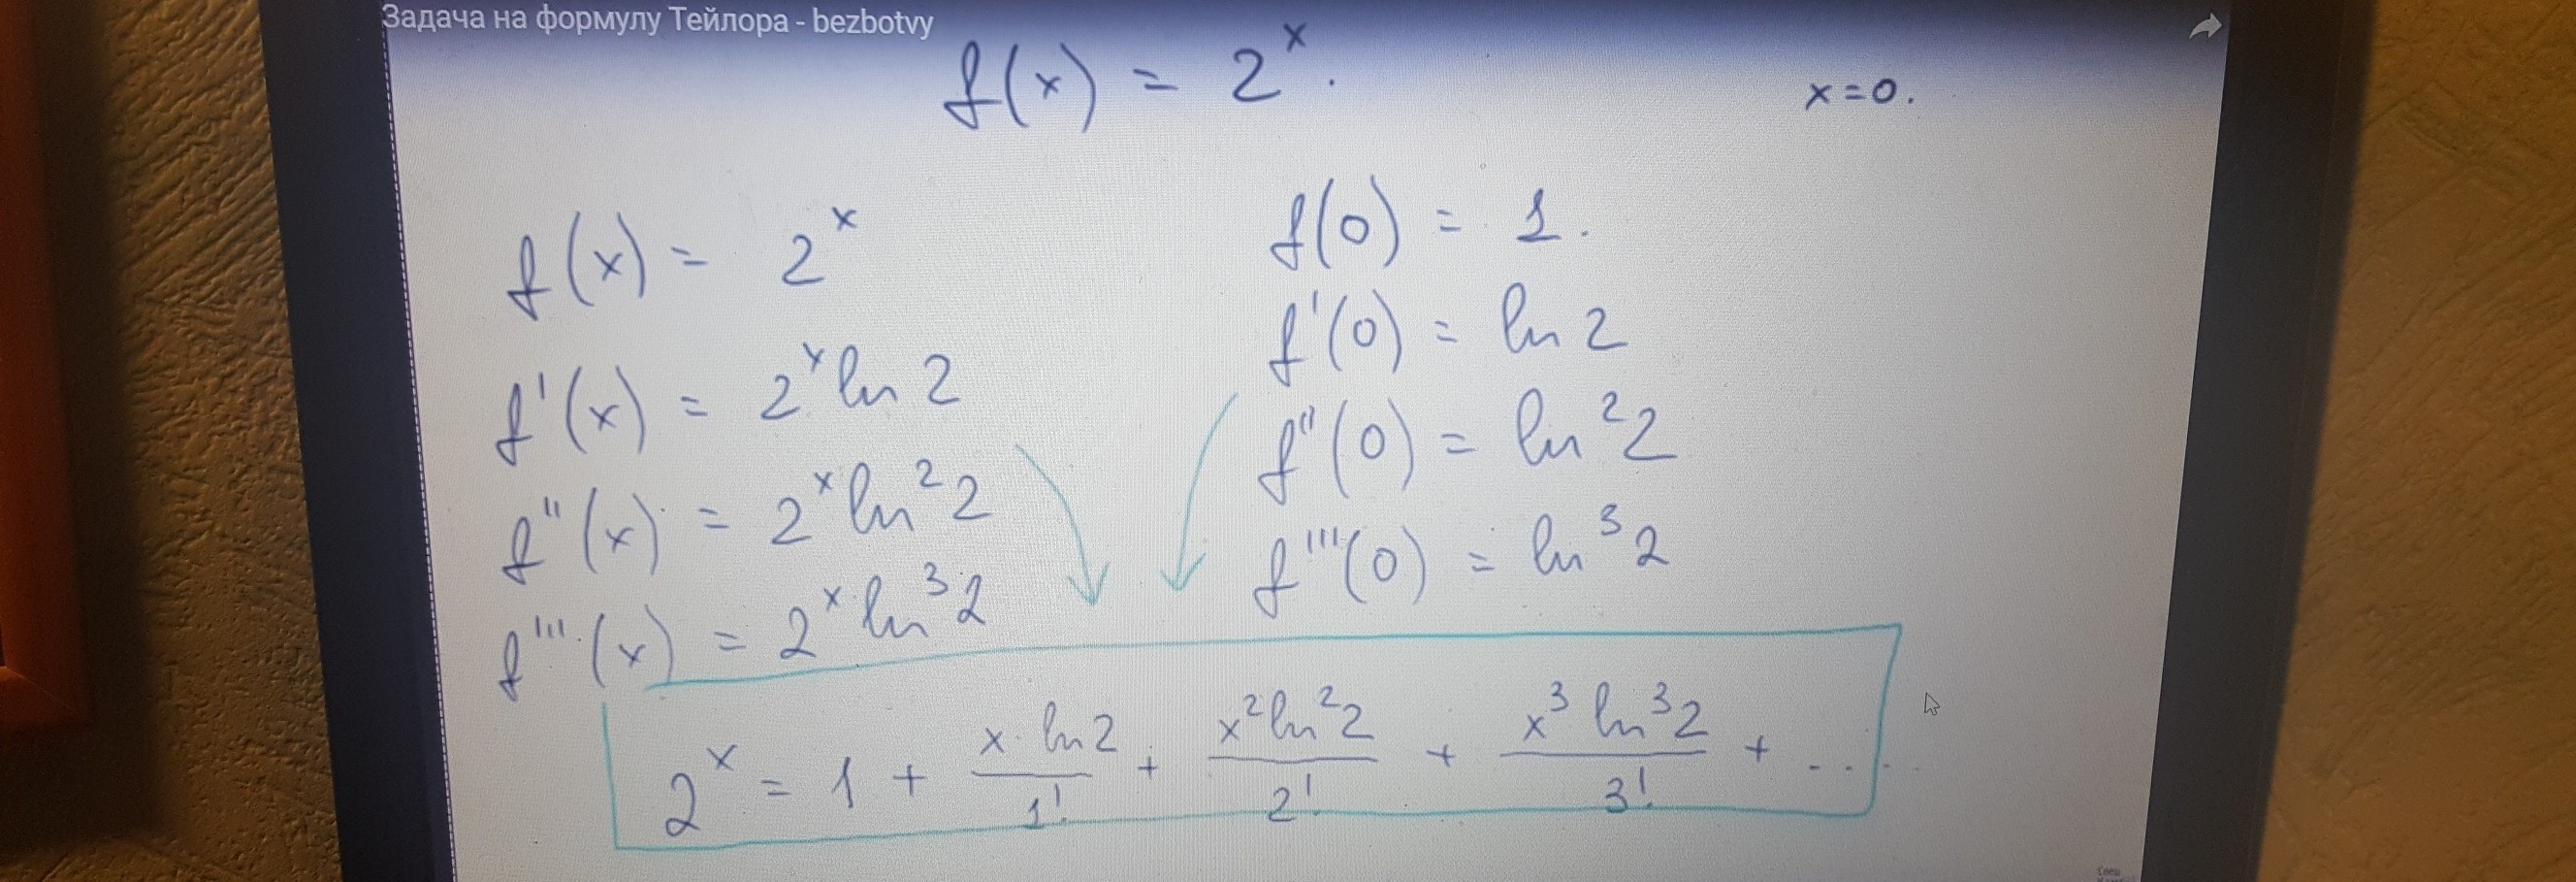 Задача на формулу Тейлора - bezbotvy
f(x) = 2^x.
x=0.
f(x) = 2^x
f'(x) = 2^x ln 2
f''(x) = 2^x ln^2 2
f'''(x) = 2^x ln^3 2
f(0) = 1.
f'(0) = ln 2
f''(0) = ln^2 2
f'''(0) = ln^3 2
2^x = 1 + x· ln 2/1! + x^2 ln^2 2/2! + x^3 ln^3 2/3! + ....